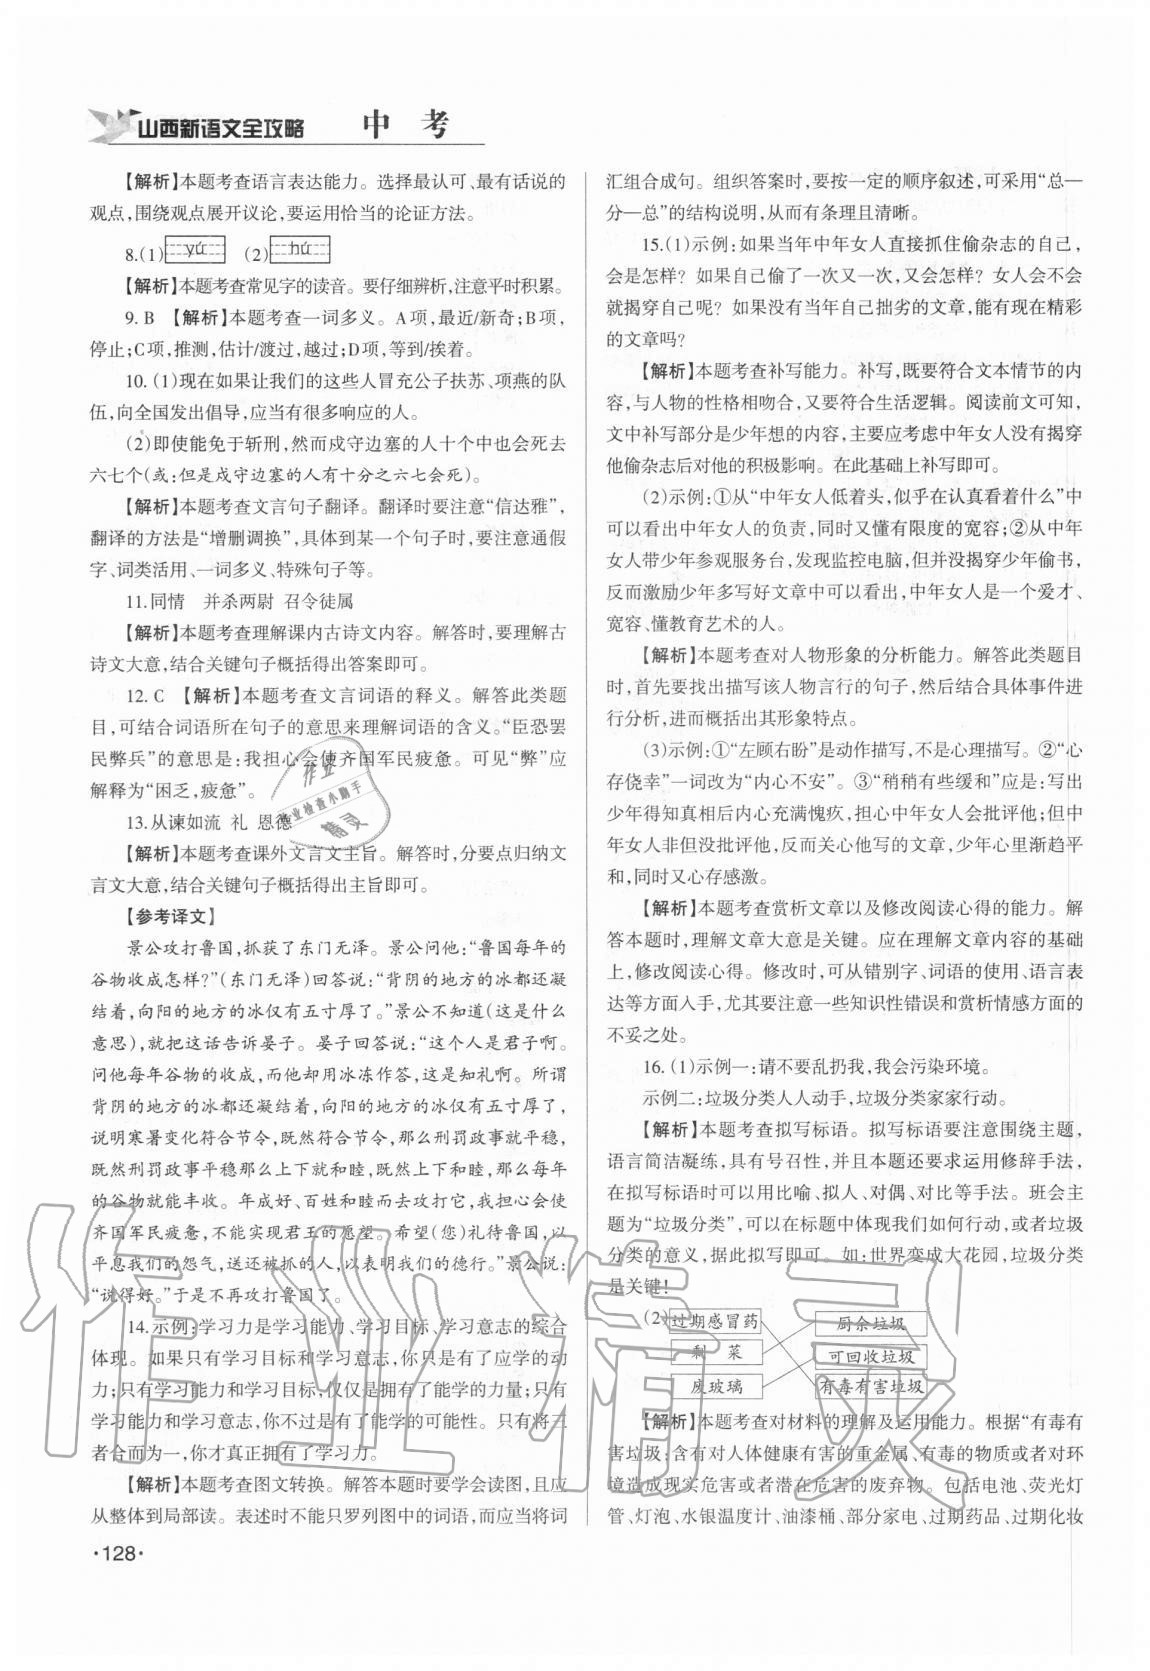 山西新语文全攻略 中 考
【解析】本题考查语言表达能力。选择最认可、最有话说的
观点,围绕观点展开议论,要运用恰当的论证方法。
8.(1) yú (2) hú
【解析】本题考查常见字的读音。要仔细辨析,注意平时积累。
9. B 【解析】本题考查一词多义。A项,最近/新奇;B项,
停止;C项,推测,估计/渡过,越过;D项,等到/挨着。
10. (1)现在如果让我们的这些人冒充公子扶苏、项燕的队
伍,向全国发出倡导,应当有很多响应的人。
(2)即使能免于斩刑,然而戍守边塞的人十个中也会死去
六七个(或:但是戍守边塞的人有十分之六七会死)。
【解析】本题考查文言句子翻译。翻译时要注意“信达雅”,
翻译的方法是“增删调换”,具体到某一个句子时,要注意通假
字、词类活用、一词多义、特殊句子等。
11.同情 并杀两尉 召令徒属
【解析】本题考查理解课内古诗文内容。解答时,要理解古
诗文大意,结合关键句子概括得出答案即可。
12. C 【解析】本题考查文言词语的释义。解答此类题
目,可结合词语所在句子的意思来理解词语的含义。“臣恐罢
民弊兵”的意思是:我担心会使齐国军民疲惫。可见“弊”应
解释为“困乏,疲惫”。
13.从谏如流 礼 恩德
【解析】本题考查课外文言文主旨。解答时,分要点归纳文
言文大意,结合关键句子概括得出主旨即可。
【参考译文】
景公攻打鲁国,抓获了东门无泽。景公问他:“鲁国每年的
谷物收成怎样?”(东门无泽)回答说:“背阴的地方的冰都还凝
结着,向阳的地方的冰仅有五寸厚了。”景公不知道(这是什么
意思),就把这话告诉晏子。晏子回答说:“这个人是君子啊。
问他每年谷物的收成,而他却用冰冻作答,这是知礼啊。所谓
背阴的地方的冰都还凝结着,向阳的地方的冰仅有五寸厚了,
说明寒暑变化符合节令,既然符合节令那么刑罚政事就平稳,
既然刑罚政事平稳那么上下就和睦,既然上下和睦,那么每年
的谷物就能丰收。年成好、百姓和睦而去攻打它,我恐怕会使
齐国军民疲惫,不能实现君王的愿望。希望(您)礼待鲁国,以
平息我们的怨气,送还被抓的人,以表明我们的德行。”景公说:
“说得好。”于是不再攻打鲁国了。
14.示例:学习力是学习能力、学习目标、学习意志的综合
体现。如果只有学习目标和学习意志,你只是有了应学的动
力;只有学习能力和学习目标,仅仅是拥有了能学的力量;只有
学习能力和学习意志,你不过是有了能学的可能性。只有将三
者合而为一,你才真正拥有了学习力。
【解析】本题考查图文转换。解答本题时要学会读图,且应
从整体到局部读。表述时不能只罗列图中的词语,而应当将词
·128·
汇组合成句。组织答案时,要按一定的顺序叙述,可采用“总—
分—总”的结构说明,从而有条理且清晰。
15.(1)示例:如果当年中年女人直接抓住偷杂志的自己,
会是怎样?如果自己偷了一次又一次,又会怎样?女人会不会
就揭穿自己呢?如果没有当年自己拙劣的文章,能有现在精彩
的文章吗?
【解析】本题考查补写能力。补写,既要符合文本情节的内容,
要与人物的性格相吻合,又要符合生活逻辑。阅读前文可知,
文中补写部分是少年想的内容,主要应考虑中年女人没有揭穿
他偷杂志后对他的积极影响。在此基础上补写即可。
(2)示例:①从“中年女人低着头,似乎在认真看着什么”中
可以看出中年女人的负责,同时又懂有限度的宽容;②从中年
女人带少年参观服务台,发现监控电脑,但并没揭穿少年偷书,
反而激励少年多写好文章中可以看出,中年女人是一个爱才、
宽容、懂教育艺术的人。
【解析】本题考查对人物形象的分析能力。解答此类题目
时,首先要找出描写该人物言行的句子,然后结合具体事件进
行分析,进而概括出其形象特点。
(3)示例:①“左顾右盼”是动作描写,不是心理描写。②“心
存侥幸”一词改为“内心不安”。③“稍稍有些缓和”应是:写出
少年得知真相后内心充满愧疚,担心中年女人会批评他;但中
年女人非但没批评他,反而关心他写的文章,少年心里渐趋平
和,同时又心存感激。
【解析】本题考查赏析文章以及修改阅读心得的能力。解
答本题时,理解文章大意是关键。应在理解文章内容的基础
上,修改阅读心得。修改时,可从错别字、词语的使用、语言表
达等方面入手,尤其要注意一些知识性错误和赏析情感方面的
不妥之处。
16. (1)示例一:请不要乱扔我,我会污染环境。
示例二:垃圾分类人人动手,垃圾分类家家行动。
【解析】本题考查拟写标语。拟写标语要注意围绕主题,
语言简洁凝练,具有号召性,并且本题还要求运用修辞手法,
在拟写标语时可以用比喻、拟人、对偶、对比等手法。班会主
题为“垃圾分类”,可以在标题中体现我们如何行动,或者垃圾
分类的意义,据此拟写即可。如:世界变成大花园,垃圾分类
是关键!
(2) 过期感冒药 厨余垃圾
剩 菜 可回收垃圾
废玻璃 有毒有害垃圾
【解析】本题考查对材料的理解及运用能力。根据“有毒有
害垃圾:含有对人体健康有害的重金属、有毒的物质或者对环
境造成现实危害或者潜在危害的废弃物。包括电池、荧光灯
管、灯泡、水银温度计、油漆桶、部分家电、过期药品、过期化妆
作业
作业检查小助手
精灵
作业精灵